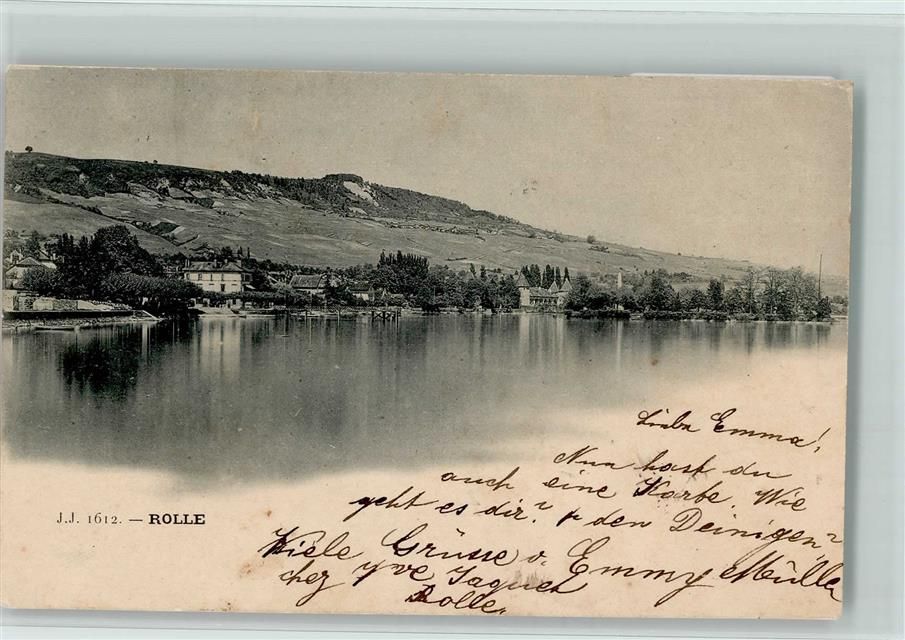 Liebe Emma!
Nun hast du
auch eine Karte. Wie
geht es dir? & den Deinigen?
Viele Grüsse v. Emmy Müller
chez Yve Jaques
Rolle.
J.J. 1612. — ROLLE